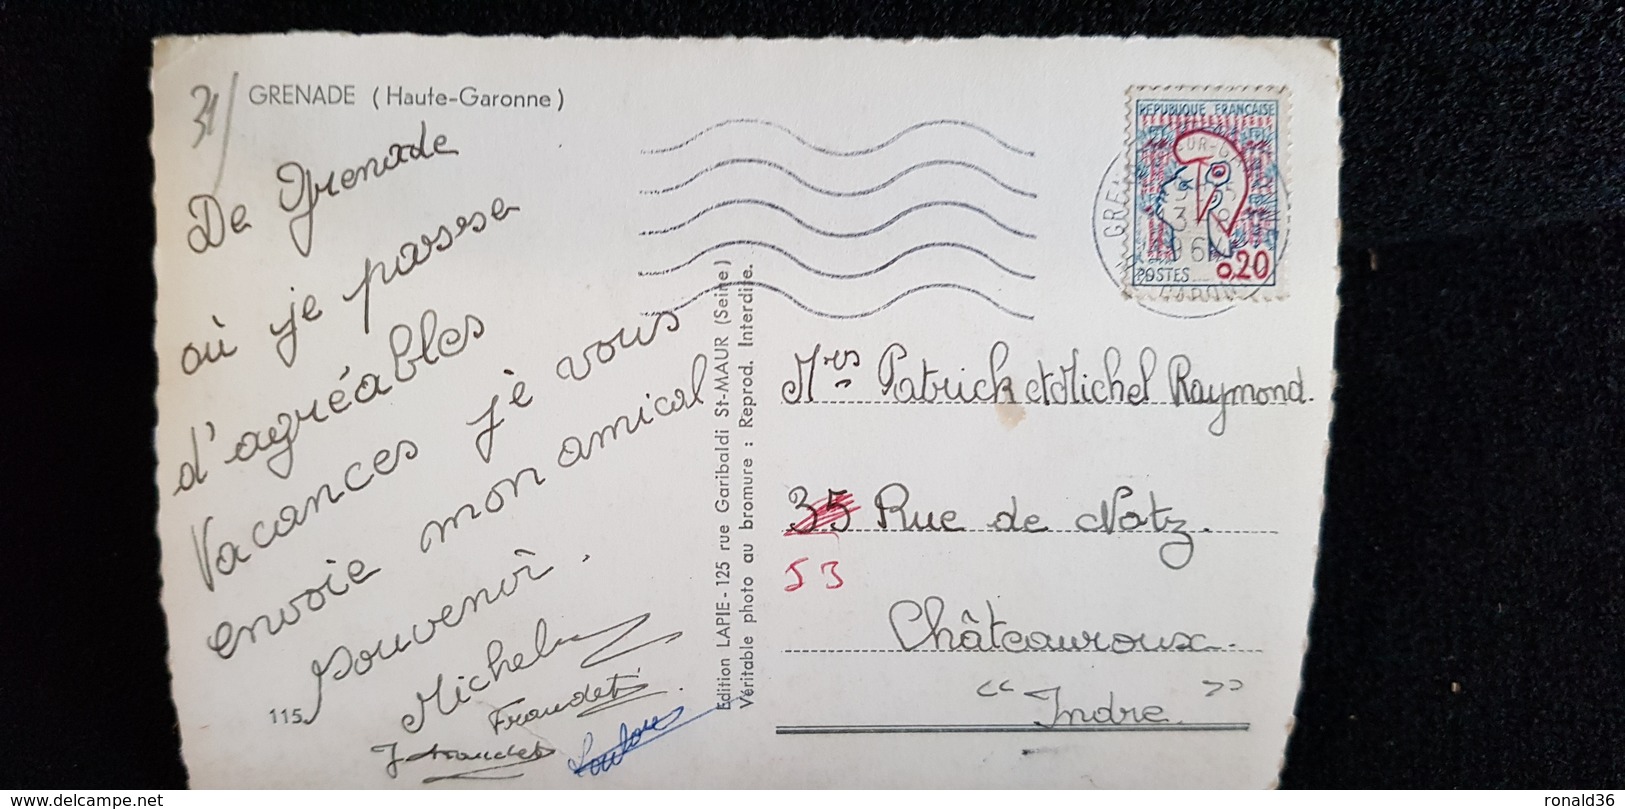 31/
GRENADE (Haute-Garonne)
De Grenade
où je passe
d'agréables
Vacances je vous
envoie mon amical
souvenir.
Michel
115
Edition LAPIE - 125 rue Garibaldi St-MAUR (Seine)
Véritable photo au bromure : Reprod. Interdite.
REPUBLIQUE FRANÇAISE
POSTES
0,20
Mrs Patrick et Michel Raymond.
35 Rue de Notz.
53
Châteauroux.
"Indre"
www.delcampe.net
ronald36